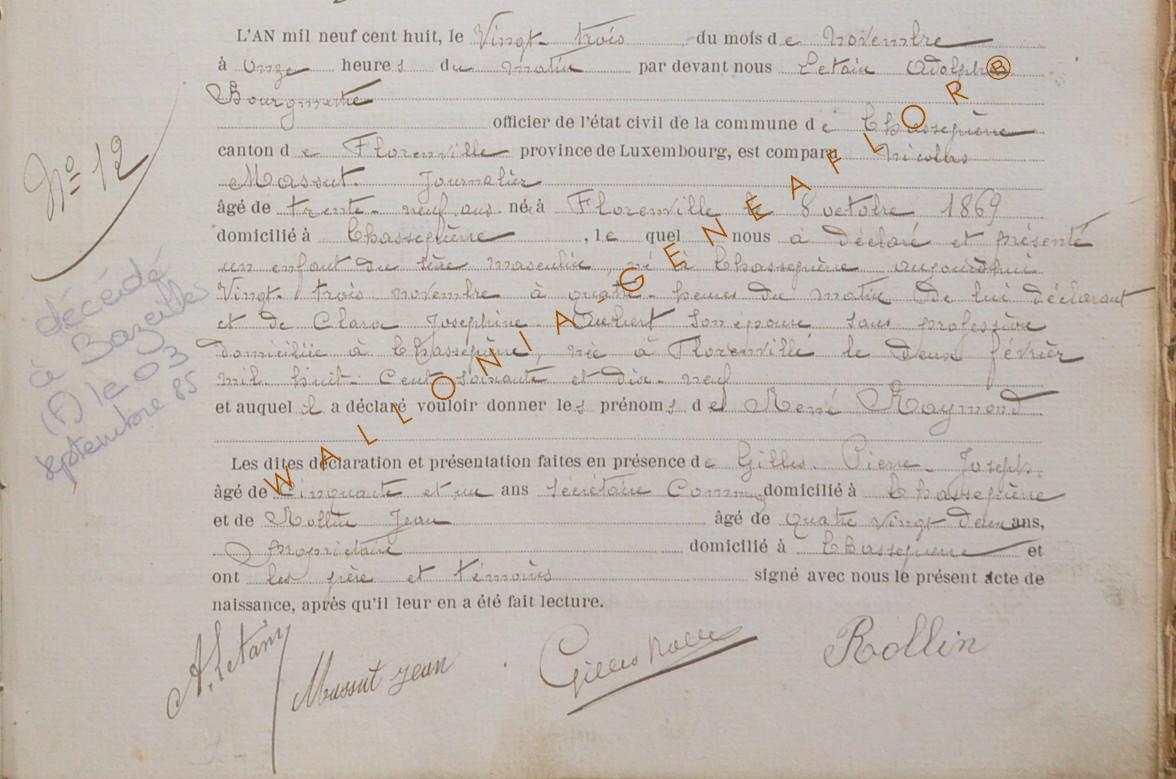 L'AN mil neuf cent huit, le Vingt-trois du mois de novembre
à Onze heures du matin par devant nous Letain Adolphe
Bourgmestre
officier de l'état civil de la commune de Chassepierre
canton de Florenville province de Luxembourg, est comparu Nicolas
Massut. Journalier
âgé de trente-neuf ans né à Florenville le 8 octobre 1869
domicilié à Chassepierre, lequel nous a déclaré et présenté
un enfant du sexe masculin, né à Chassepierre aujourd'hui
Vingt-trois novembre à quatre heures du matin de lui déclarant
et de Clara Joséphine Aubert son épouse sans profession
domiciliée à Chassepierre, née à Florenville le deux février
mil huit-Cent soixante et dix-neuf
et auquel il a déclaré vouloir donner les prénoms de René Raymond
Les dites déclaration et présentation faites en présence de Gilles Pierre-Joseph.
âgé de Cinquante et un ans secrétaire Comm domicilié à Chassepierre
et de Rollin Jean âgé de quatre vingt deux ans,
propriétaire domicilié à Chassepierre et
ont les père et témoins signé avec nous le présent acte de
naissance, après qu'il leur en a été fait lecture.
N° 12
décédé
à Bazeilles
(F) le 03
septembre 85
A. Letain Massut Jean Gilles Rollin
WALLONIA.GENEAFLOR®